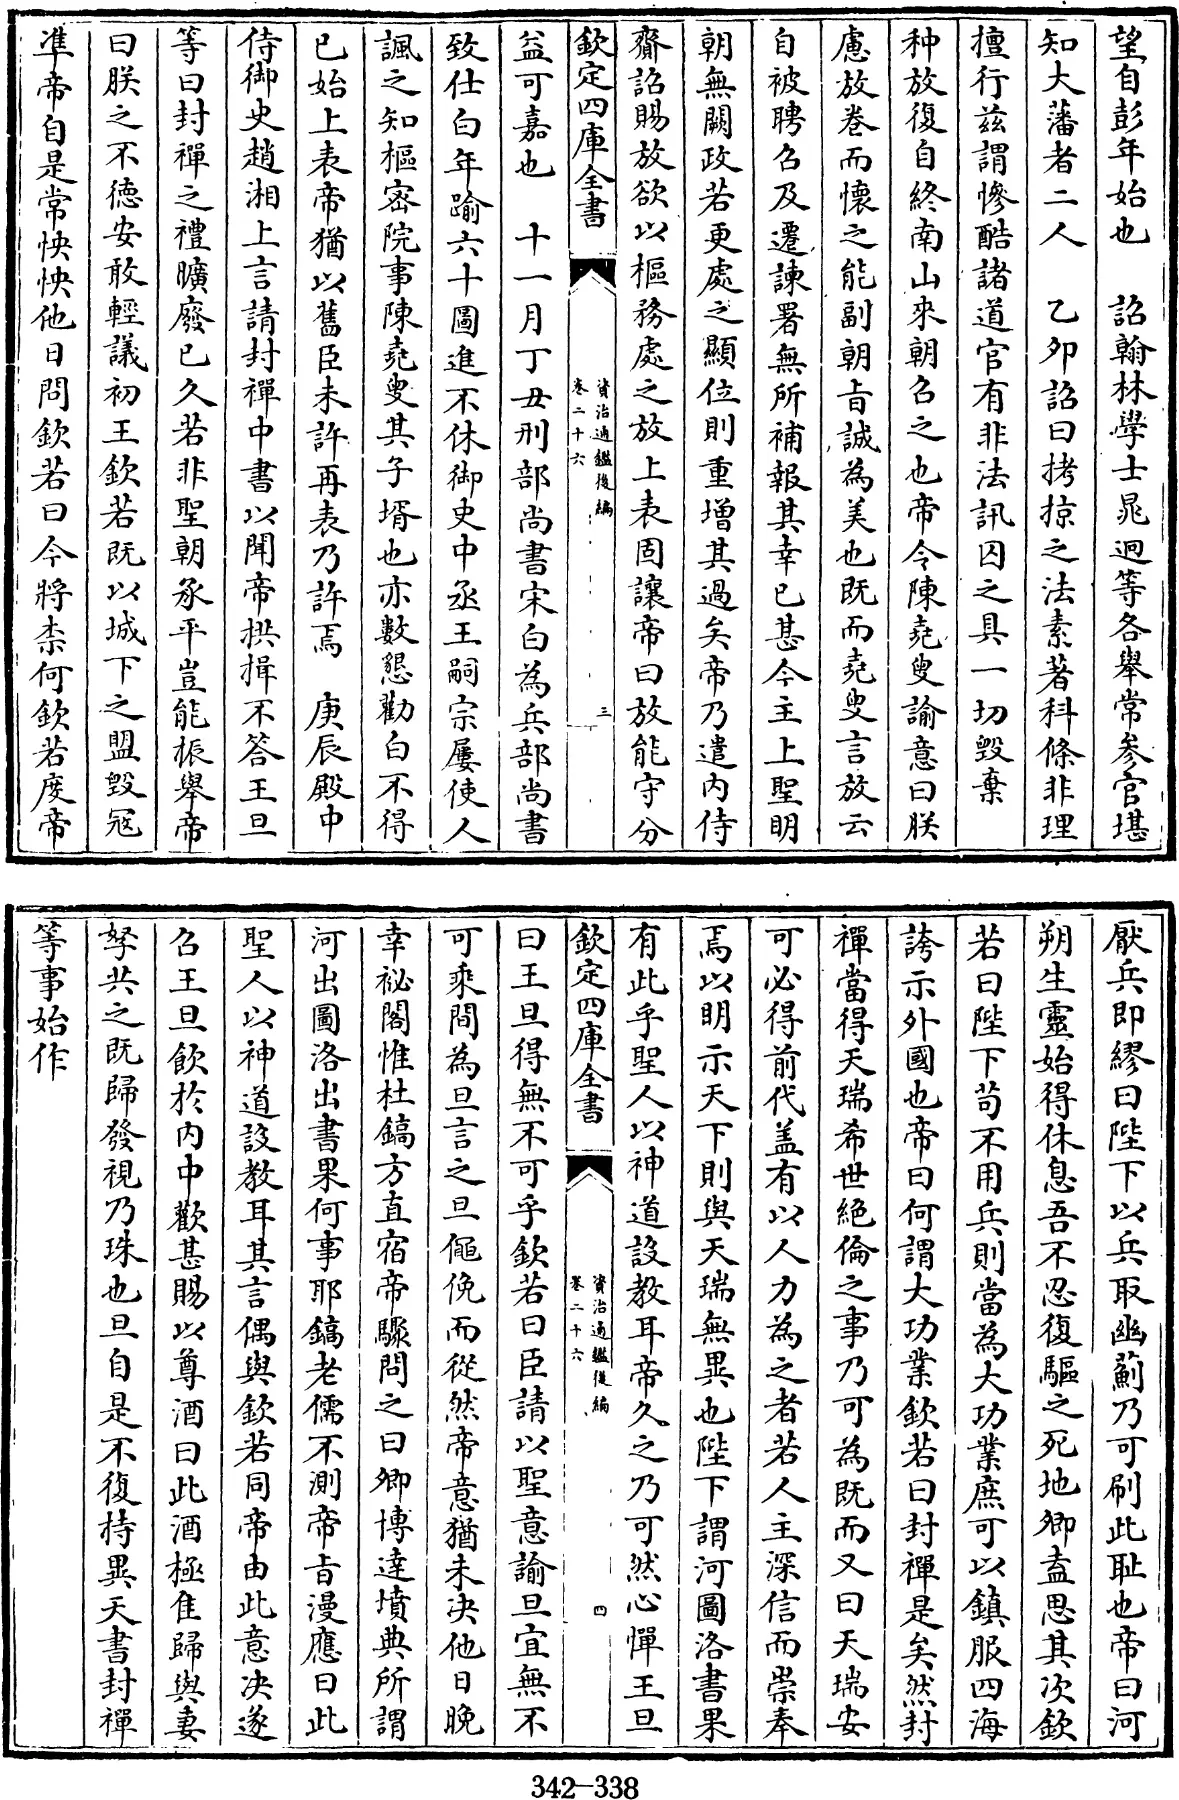 望自彭年始也　詔翰林學士晁迥等各舉常參官堪
知大藩者二人　乙卯詔曰拷掠之法素著科條非理
擅行兹謂慘酷諸道官有非法訊囚之具一切毁棄
种放復自終南山來朝召之也帝令陳堯叟諭意曰朕
慮放卷而懷之能副朝旨誠為美也既而堯叟言放云
自被聘召及遷諫署無所補報其幸已甚今主上聖明
朝無闕政若更處之顯位則重增其過矣帝乃遣内侍
齎詔賜放欲以樞務處之放上表固讓帝曰放能守分
欽定四庫全書
資治通鑑後編
卷二十六
三
益可嘉也　十一月丁丑刑部尚書宋白為兵部尚書
致仕白年踰六十圖進不休御史中丞王嗣宗屢使人
諷之知樞密院事陳堯叟其子壻也亦數懇勸白不得
已始上表帝猶以舊臣未許再表乃許焉　庚辰殿中
侍御史趙湘上言請封禪中書以聞帝拱揖不答王旦
等曰封禪之禮曠廢已久若非聖朝承平豈能振舉帝
曰朕之不德安敢輕議初王欽若既以城下之盟毁寇
準帝自是常怏怏他日問欽若曰今將柰何欽若度帝
厭兵即繆曰陛下以兵取幽薊乃可刷此耻也帝曰河
朔生靈始得休息吾不忍復驅之死地卿盍思其次欽
若曰陛下苟不用兵則當為大功業庶可以鎮服四海
誇示外國也帝曰何謂大功業欽若曰封禪是矣然封
禪當得天瑞希世絶倫之事乃可為既而又曰天瑞安
可必得前代盖有以人力為之者若人主深信而崇奉
焉以明示天下則與天瑞無異也陛下謂河圖洛書果
有此乎聖人以神道設教耳帝久之乃可然心憚王旦
欽定四庫全書
資治通鑑後編
卷二十六
四
曰王旦得無不可乎欽若曰臣請以聖意諭旦宜無不
可乘間為旦言之旦僶俛而從然帝意猶未决他日晚
幸祕閣惟杜鎬方直宿帝驟問之曰卿博達墳典所謂
河出圖洛出書果何事耶鎬老儒不測帝旨漫應曰此
聖人以神道設教耳其言偶與欽若同帝由此意决遂
召王旦飲於内中歡甚賜以尊酒曰此酒極佳歸與妻
孥共之既歸發視乃珠也旦自是不復持異天書封禪
等事始作
342—338